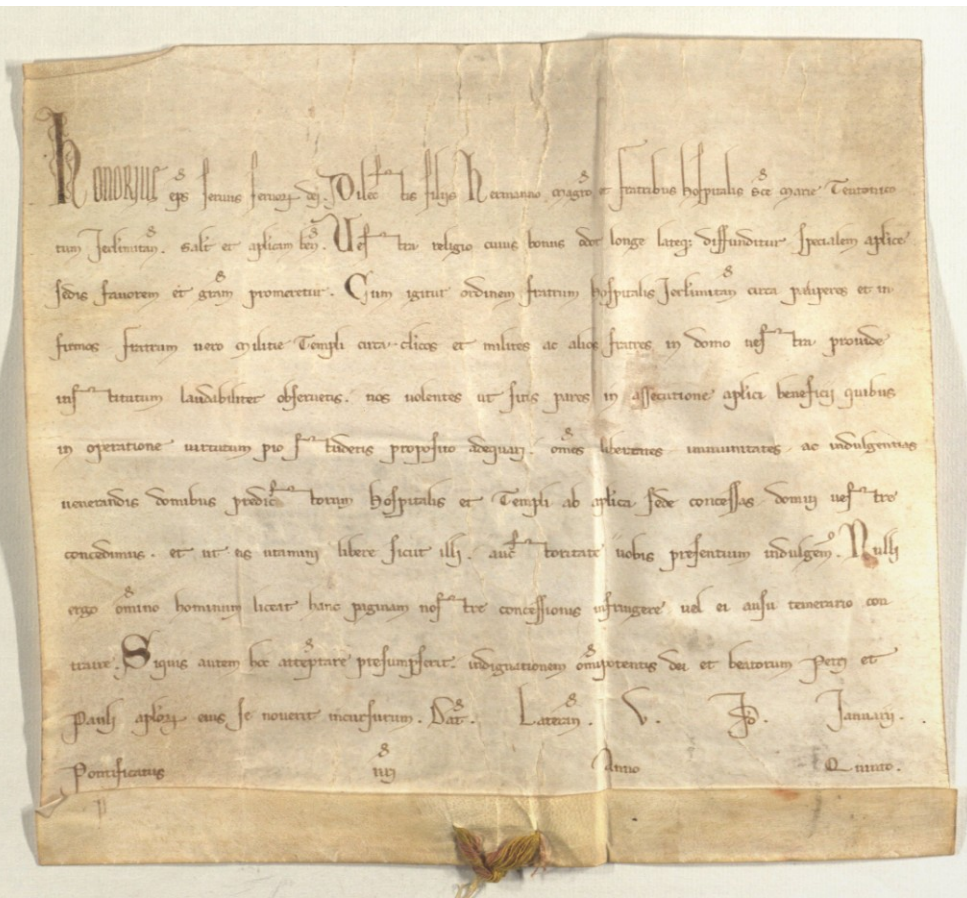 Honorius eps servus servoꝝ dei. Dilectis filiis Hermanno magro et fratribus hospitalis sce Marie Teutonico
rum Ierlimitan. salt et aplicam ben. Vestra religio cuius bonus odor longe lateqꝫ diffunditur specialem aplice
sedis favorem et gram promeretur. Cum igitur ordinem fratrum hospitalis Ierlimitan circa pauperes et in
firmos fratrum vero militie Templi circa clicos et milites ac alios fratres in domo vestra provide
institutum laudabiliter observetis. nos volentes ut sitis pares in assecutione aplici beneficii quibus
in operatione virtutum pio studetis proposito adequari. omes libertates immunitates ac indulgentias
venerandis domibus predictorum hospitalis et Templi ab aplica sede concessas domui vestre
concedimus. et ut eis utamini libere sicut illi. auctoritate vobis presentium indulgem. Nulli
ergo omino hominum liceat hanc paginam nostre concessionis infringere vel ei ausu temerario con
traire. Siquis autem hoc atteptare presumpserit. indignationem omipotentis dei et beatorum Petri et
Pauli aploꝝ eius se noverit incursurum. Dat. Lateran. V. Id. Ianuarii.
Pontificatus nri Anno Quinto.